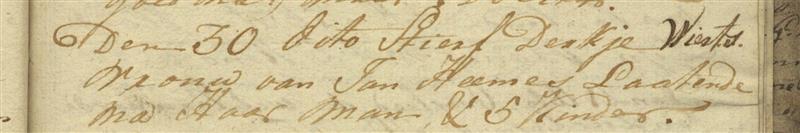 Den 30 dito Stierf Derkje Wierts.
Vrouw van Jan Heemes Laatende
na Haar man, & 5 Kinder.